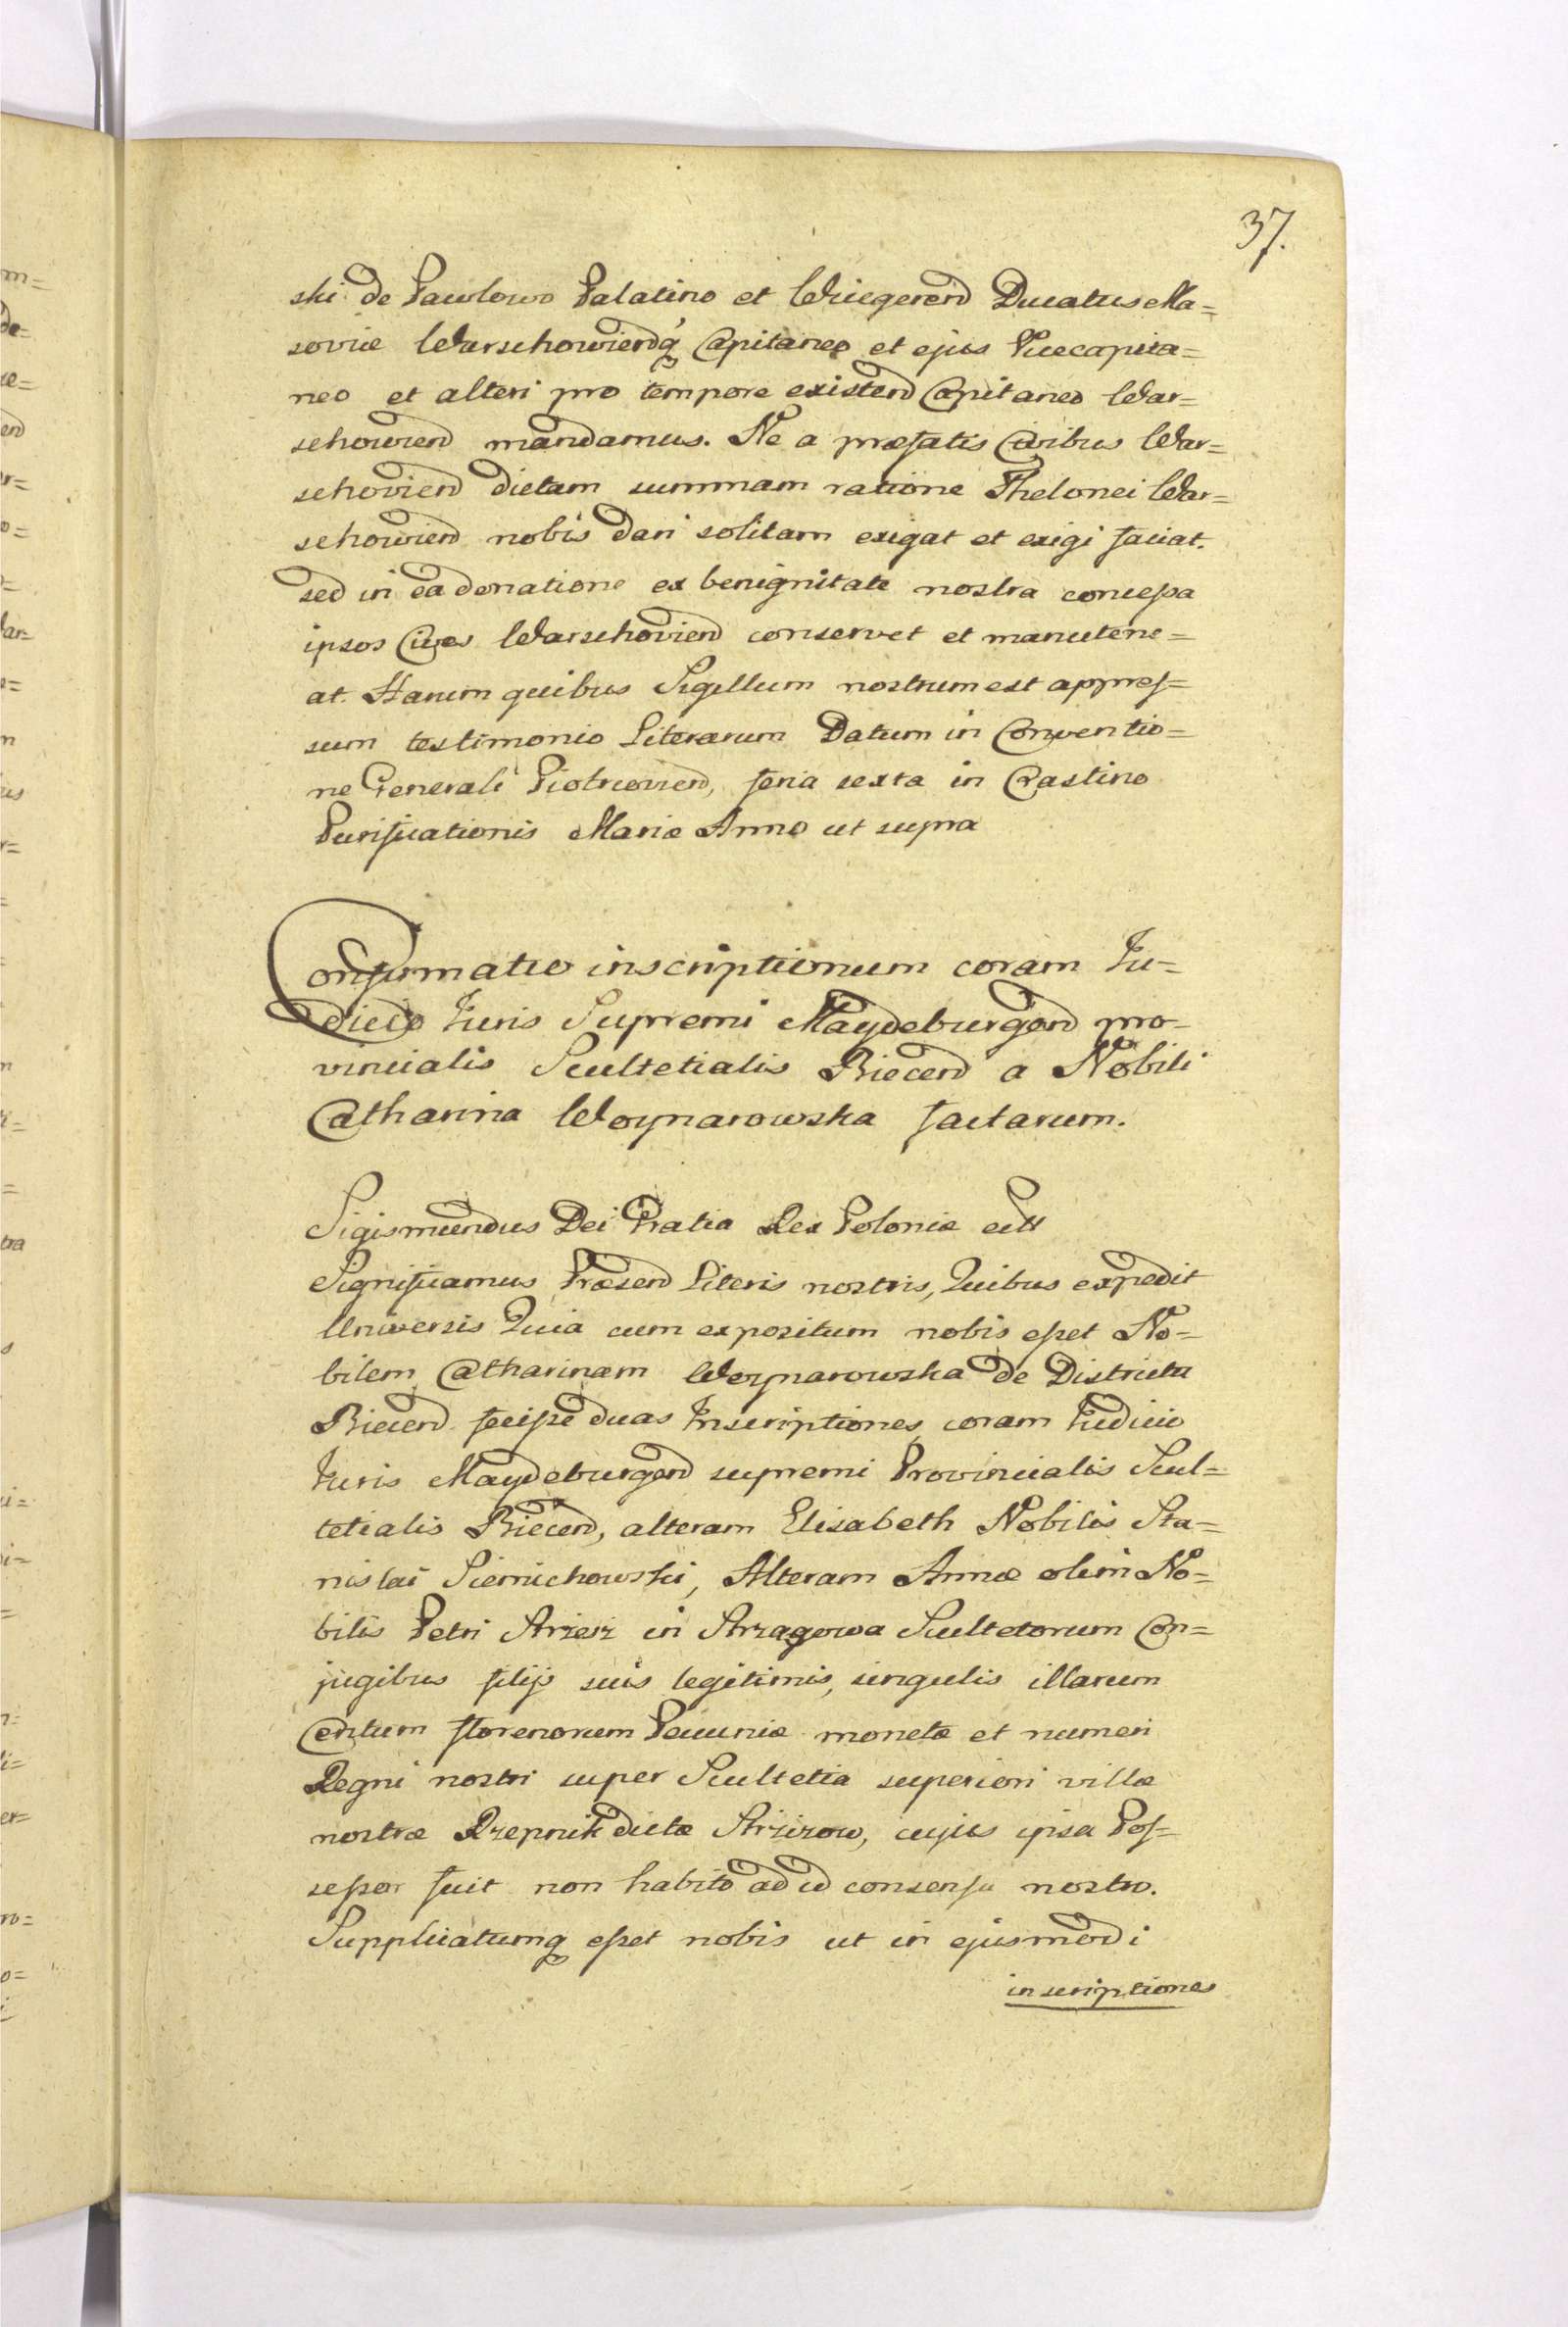 37.
ski de Pawlowo Palatino et Wicegerend Ducatus Ma=
soviæ Warschowiendq Capitaneo et ejus Vicecapita=
neo et alteri pro tempore existend Capitaneo War=
schowiend mandamus. Ne a præfatis Civibus War=
schoviend dictam summam ratione Thelonei War=
schowiend nobis dari solitam exigat et exigi faciat.
sed in ea donatione ex benignitate nostra concessa
ipsos Cives Warschoviend conservet et manutene=
at. Harum quibus Sigillum nostrum est appres=
sum testimonio Literarum Datum in Conventio=
ne Generali Piotrcoviend, feria sexta in Crastino
Purificationis Mariæ Anno ut supra
Confirmatio inscriptionum coram Ju=
dicio Juris Supremi Maydeburgend pro-
vincialis Scultetialis Biecend a Nobili
Catharina Woynarowska factarum.
Sigismundus Dei Gratia Rex Poloniæ ett
Significamus Præsend Literis nostris, Quibus expedit
Universis Quia cum expositum nobis esset No=
bilem Catharinam Woynarowska de Districtu
Biecend fecisse duas Inscriptiones coram Judicio
Juris Maydeburgend supremi Provincialis Scul=
tetialis Biecend, alteram Elisabeth Nobilis Sta=
nislai Siemichowski, Alteram Annæ olim No=
bilis Petri in Scultetorum Con=
jugibus filijs suis legitimis, singulis illarum
Centum florenorum Pecuniæ monetæ et numeri
Regni nostri super Scultetia superiori villæ
nostræ Rzepnik dictæ cujus ipsa Pos=
sessor fuit non habito ad id consensu nostro.
Supplicatumq esset nobis ut in ejusmodi
inscriptiones